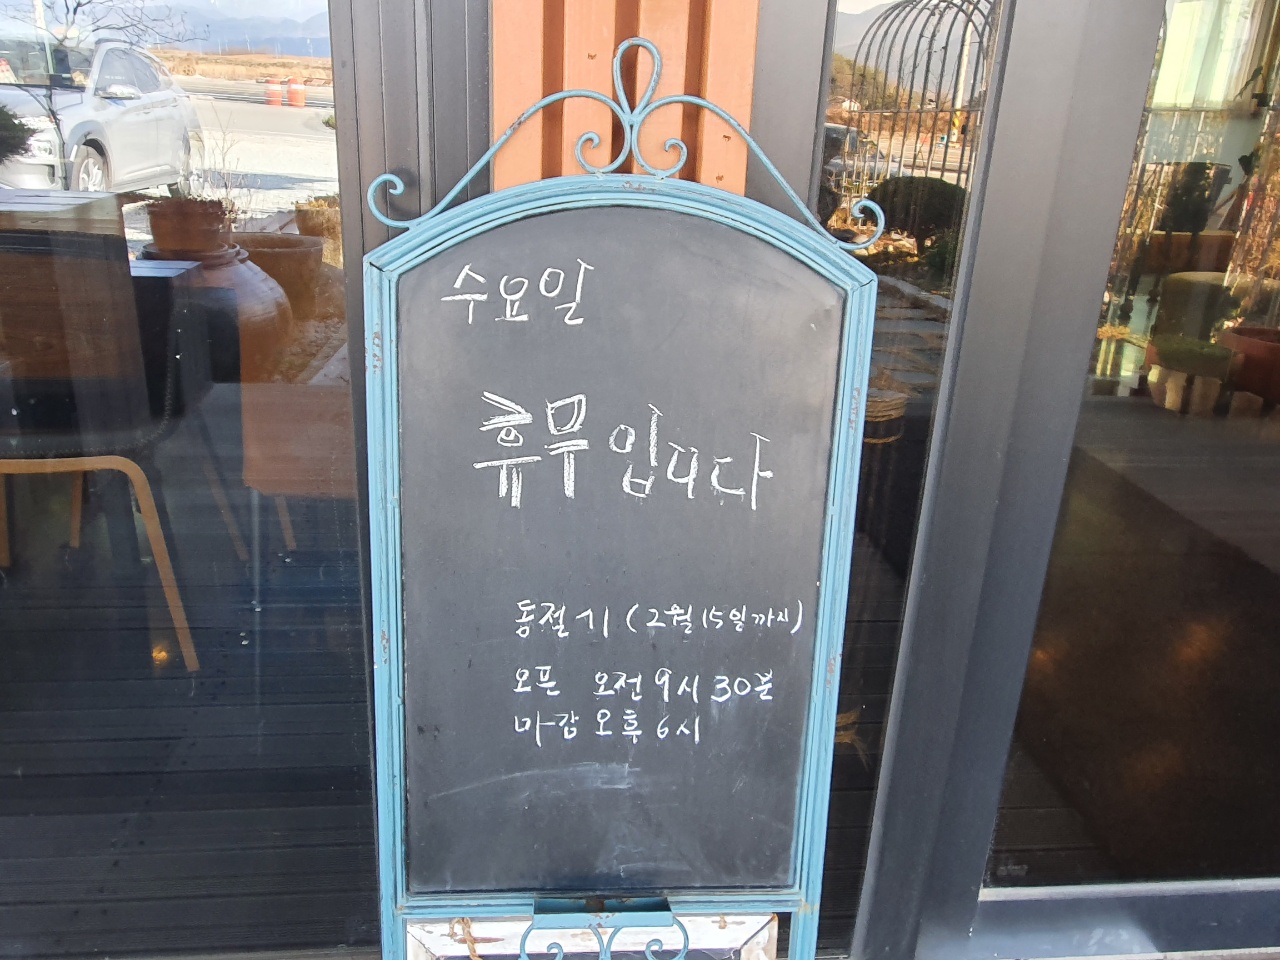 수요일
휴무입니다
동절기 (2월 15일까지)
오픈 오전 9시 30분
마감 오후 6시